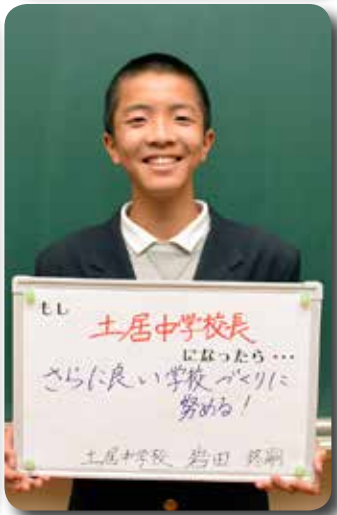 もし
土居中学校長
になったら…
さらに良い学校づくりに
努める!
土居中学校 岩田